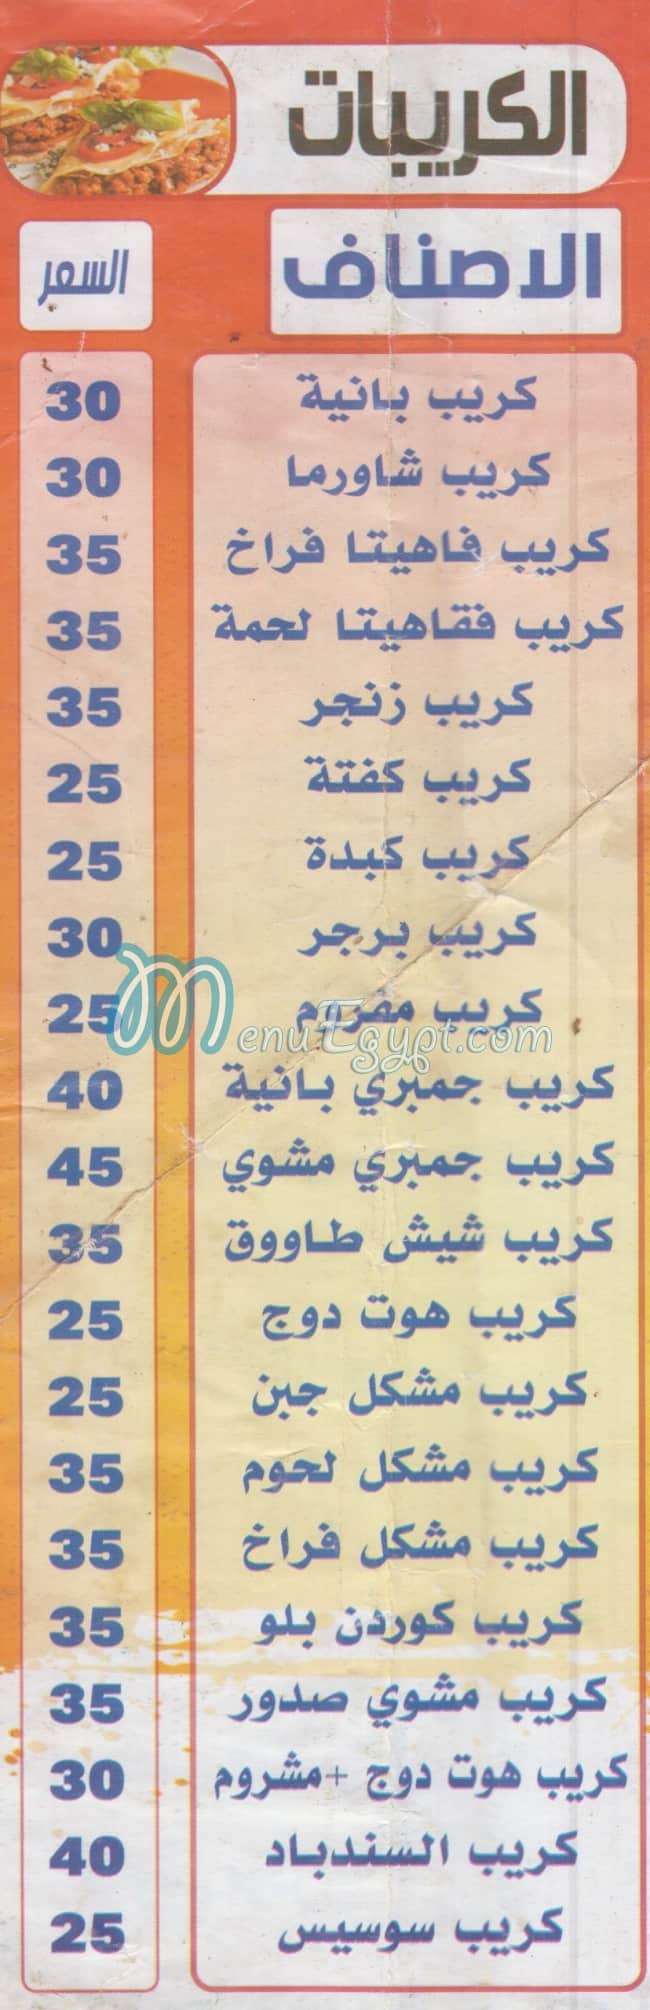 الكريبات
الاصناف السعر
كريب بانية 30
كريب شاورما 30
كريب فاهيتا فراخ 35
كريب فقاهيتا لحمة 35
كريب زنجر 35
كريب كفتة 25
كريب كبدة 25
كريب برجر 30
كريب مفروم 25
MenuEgypt.com
كريب جمبري بانية 40
كريب جمبري مشوي 45
كريب شيش طاووق 35
كريب هوت دوج 25
كريب مشكل جبن 25
كريب مشكل لحوم 35
كريب مشكل فراخ 35
كريب كوردن بلو 35
كريب مشوي صدور 35
كريب هوت دوج +مشروم 30
كريب السندباد 40
كريب سوسيس 25